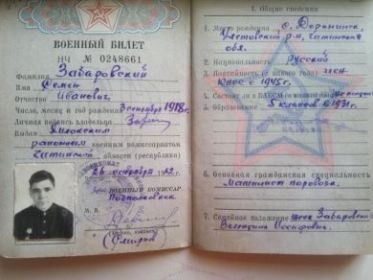 ВОЕННЫЙ БИЛЕТ
НЧ № 0248661
Фамилия Заваровский
Имя Семен
Отчество Иванович
Число, месяц и год рождения 3 сентября 1918 г.
Личная подпись владельца
Выдан Хилокским
районным военным комиссариатом
Читинской области (республики)
26 1952 г.
ВОЕННЫЙ КОМИССАР
Подполковник
М. П.
(Смирнов)
I. Общие сведения
1. Место рождения с. Доронинск
Улетовский р-н, Читинская
обл.
2. Национальность Русский
3. Партийность (с какого года) член
КПСС с 1945 г.
4. Состоит ли в ВЛКСМ
5. Образование 5 классов в 1931 г.
6. Основная гражданская специальность
Машинист паровоза.
7. Семейное положение жена Заваровская
Валентина Иосифовна.